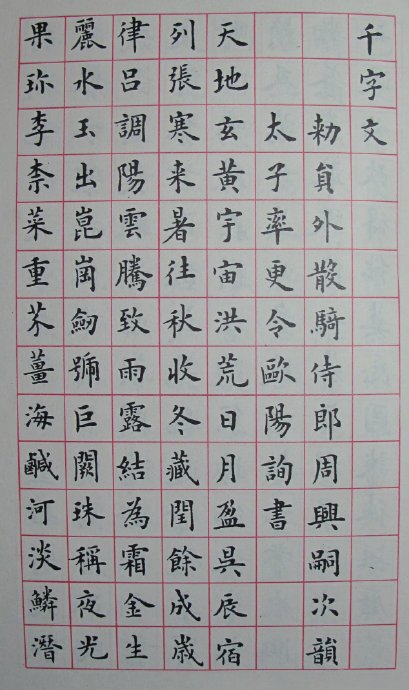 千字文
勑員外散騎侍郎周興嗣次韻
太子率更令歐陽詢書
天地玄黃宇宙洪荒日月盈昃辰宿
列張寒来暑往秋收冬藏閏餘成歲
律呂調陽雲騰致雨露結為霜金生
麗水玉出崑崗劒號巨闕珠稱夜光
果珎李柰菜重芥薑海鹹河淡鱗潛